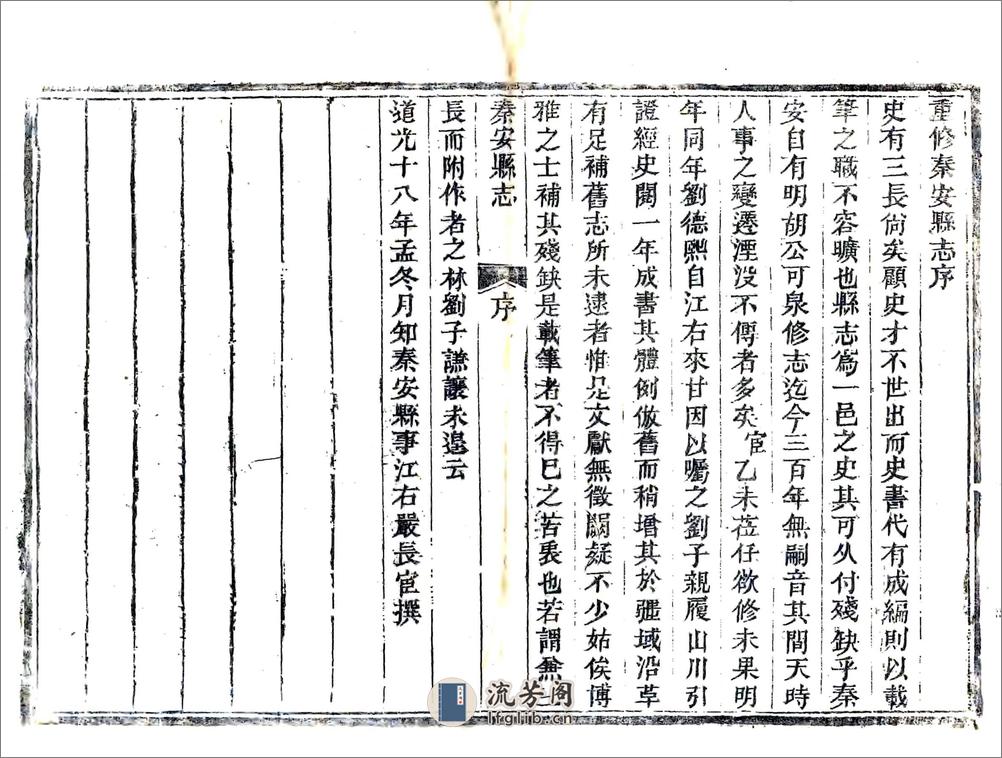 重修秦安縣志序
史有三長尚矣顧史才不世出而史書代有成編則以載
筆之職不容曠也縣志爲一邑之史其可久付殘缺乎秦
安自有明胡公可泉修志迄今三百年無嗣音其間天時
人事之變遷湮没不傳者多矣宧乙未莅任欲修未果明
年同年劉德熙自江右來甘因以囑之劉子親履山川引
證經史閱一年成書其體例倣舊而稍增其於疆域沿革
有足補舊志所未逮者惟是文獻無徵闕疑不少姑俟博
雅之士補其殘缺是載筆者不得已之苦衷也若謂兼三
秦安縣志 序
長而附作者之林劉子謙讓未遑云
道光十八年孟冬月知秦安縣事江右嚴長宧撰
流芳阁
lfglib.cn